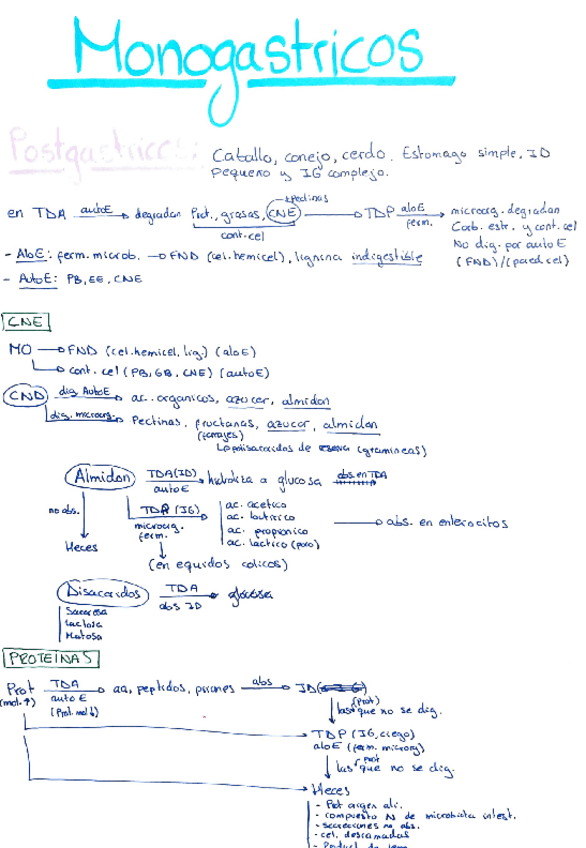 Monogastricos
Postgastricos:
Caballo, conejo, cerdo. Estomago simple, ID
Pequeno y IG complejo.
+pectinas
en TDA autoE degradan Prot., grasas, CNE TDP aloE microorg. degradan
cont.cel ferm. Carb. estr. y cont. cel
No dig. por autoE
(FND)/(pared cel)
- AloE: ferm. microb. → FND (cel. hemicel), lignina indigestible
- AutoE: PB, EE, CNE
CNE
MO → FND (cel. hemicel, lig.) (aloE)
→ cont. cel (PB, GB, CNE) (autoE)
CND dig. AutoE → ac. organicos, azucar, almidon
dig. microorg. → Pectinas, fructanas, azucar, almidon
(forrajes)
→ polisacaridos de reserva (gramineas)
Almidon TDA (ID) → hidroliza a glucosa abs. en TDA
autoE
no abs.
Heces
TDP (IG)
microorg.
ferm.
ac. acetico
ac. butirico
ac. propionico
ac. lactico (poco)
→ abs. en enterocitos
(en equidos colicos)
Disacaridos TDA → glucosa
abs ID
Sacarosa
Lactosa
Maltosa
PROTEINAS
Prot TDA → aa, peptidos, abs → ID
(mol. ↑) autoE
(Prot. mol ↓)
(Prot)
las que no se dig.
TDP (IG, ciego)
aloE (ferm. microorg)
prot
las que no se dig.
Heces
- Prot origen ali.
- compuesto N de microbiota intest.
- secreciones no abs.
- cel. descamadas
- Product de ferm